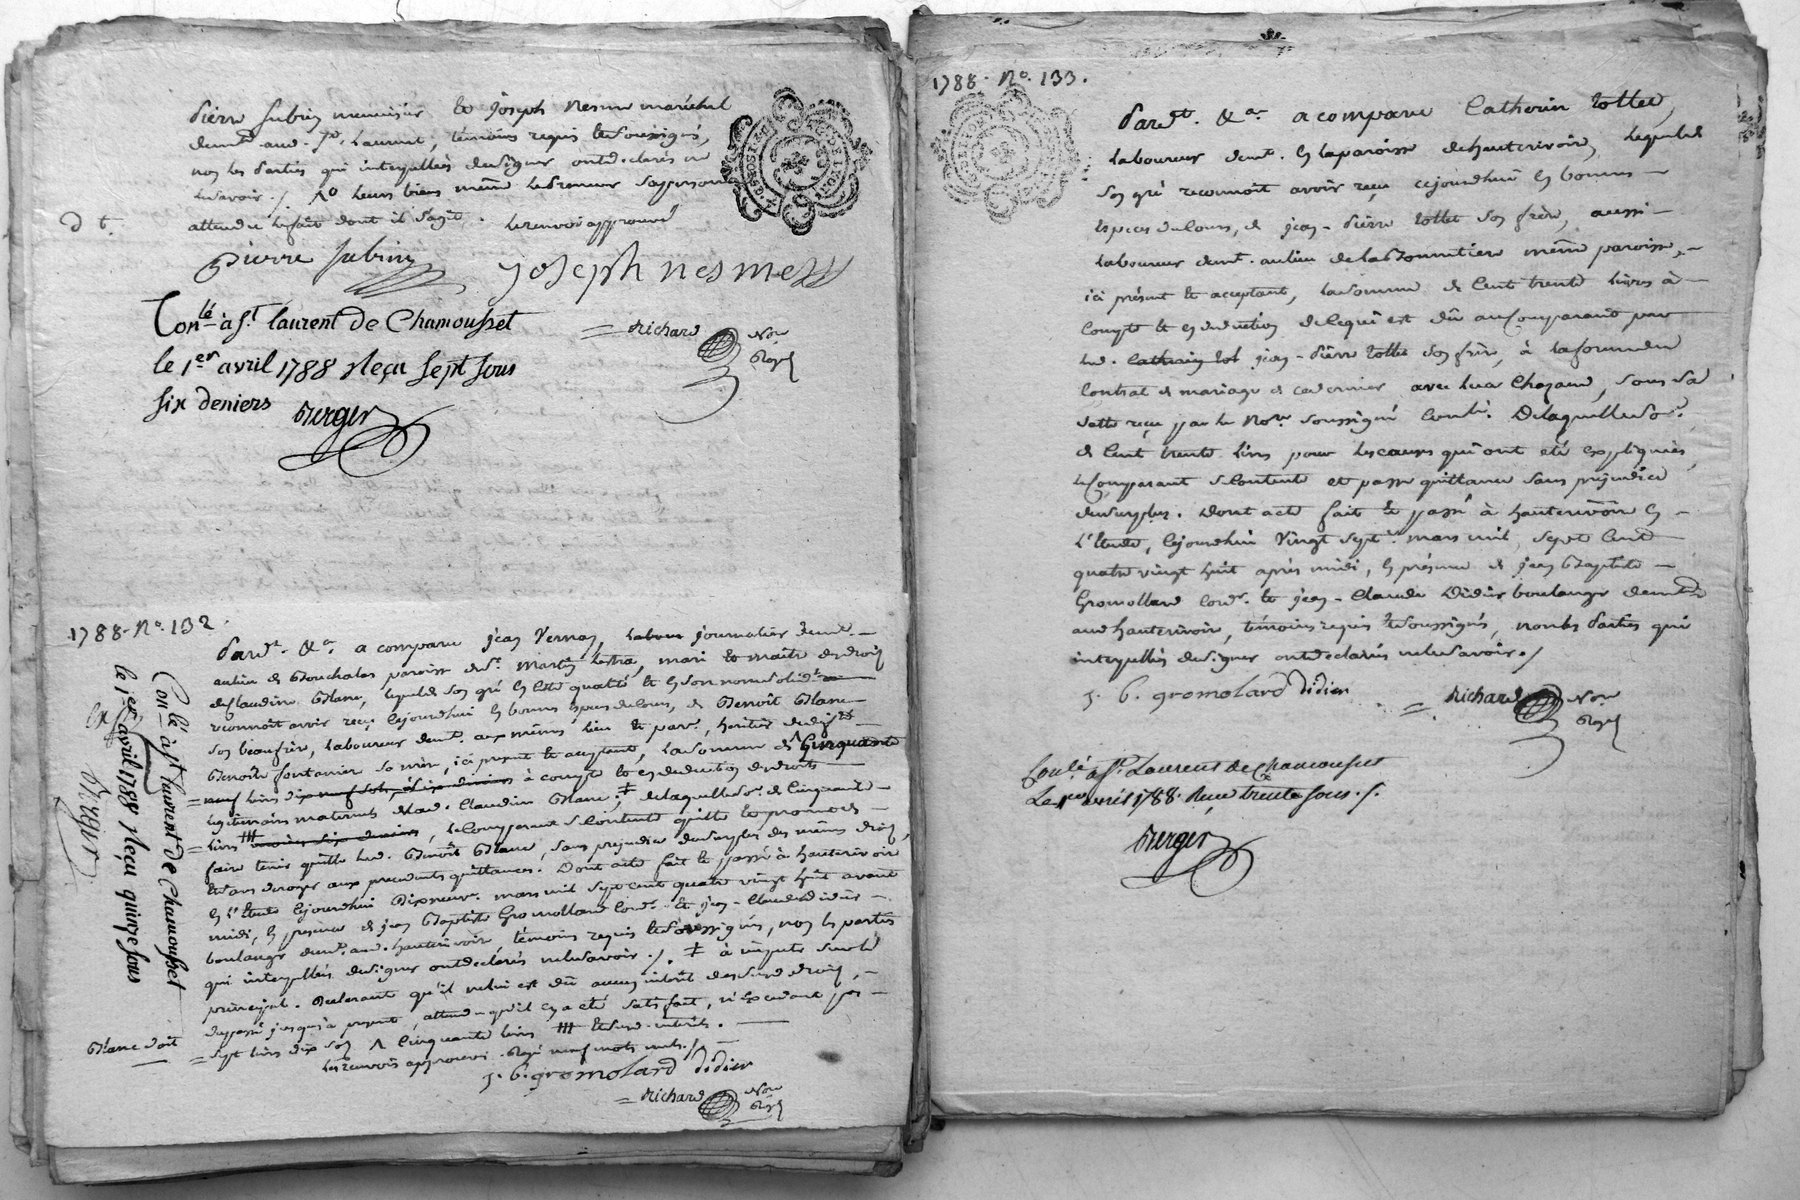 pierre subrin menuisier, et joseph nesme maréchal
demt aud. St. Laurent, témoins requis et soussignés,
non les parties qui interpellées de signer ont déclaré ne
le savoir ./.
attendu le fait dont il s'agit. le renvoi approuvé
d t.
pierre subrin
joseph nesme
Conlé. à St. laurent de Chamousset
le 1er avril 1788 Reçu sept sous
six deniers Berger
= Richard Nore Royal
1788. No. 132.
Pardt. &a. a comparu jean Vernay, labour journalier demt. —
au lieu de Bouchalas paroisse de St. Martin Lestra, mari et maître des droits
de Claudine Blanc, lequel de son gré en cette qualité et en son nom solide
reconnoit avoir reçu cejourdhui en bonnes espèces de cours, de Benoît Blanc
son beaufrère, laboureur demt. aux mêmes lieu et par., héritier de
Benoîte fontanier sa mère, ici présent et acceptant, la somme de cinquante
= livres à compte et en déduction des droits
légitimaires maternels de lad. Claudine Blanc, ‡ de laquelle so. de cinquante —
= livres, le Comparant se contente quitte et promet
faire tenir quitte led. Benoît Blanc, sans préjudice du surplus des mêmes droits,
et sans déroger aux précédentes quittances. Dont acte fait et passé à hauterivoire
en l'Etude cejourdhui Dixneuf mars mil sept cent quatre vingt huit avant
midi, en présence de jean Baptiste Gromollard cordr. et jean-Claude didier —
boulanger demt. aud. hauterivoire, témoins requis et soussignés, non les parties
qui interpellées de signer ont déclaré ne le savoir ./. ‡ à imputer sur le
principal. Déclarant qu'il ne lui est dû aucun intérêt desdits droits, —
du passé jusqu'à présent, attendu qu'il en a été satisfait, n'excédant pas —
= sept livres dix sols ^ Cinquante livres
les renvois approuvés. Rayé neuf mots nuls ./.
Blanc doit
Conlé. à St. laurent de Chamousset
le 1er avril 1788 Reçu quinze sous
Berger
j. b. gromolard didier
= Richard Nore Royal
1788. No. 133.
Pardt. &a. a comparu Catherin Rollet,
laboureur demt. en la paroisse de hauterivoire, lequel de
son gré reconnoit avoir reçu cejourdhui en bonnes —
espèces de cours, de jean-Pierre Rollet son frère, aussi —
laboureur demt. au lieu de la même paroisse, —
ici présent et acceptant, la somme de Cent trente livres à —
compte et en déduction de ce qui est dû au Comparant par
led. Catherin Rol jean-Pierre Rollet son frère, à la forme du
Contrat de mariage de ce dernier avec Chazaud, sous sa
datte reçu par le Nore. soussigné Conlé. De laquelle so.
de Cent trente livres pour les causes qui ont été expliquées,
le Comparant se contente et passe quittance sans préjudice
du surplus. Dont acte fait et passé à hauterivoire en —
l'Etude, cejourdhui Vingt sept mars mil sept Cent
quatre vingt huit après midi, en présence de jean Baptiste —
Gromollard cordr. et jean-Claude Didier boulanger demt.
aud. hauterivoire, témoins requis et soussignés, non les parties qui
interpellées de signer ont déclaré ne le savoir ./
j. b. gromolard didier
= Richard Nore Royal
Conlé. à St. Laurent de Chamousset
Le 1er avril 1788. Reçu trente sous ./.
Berger